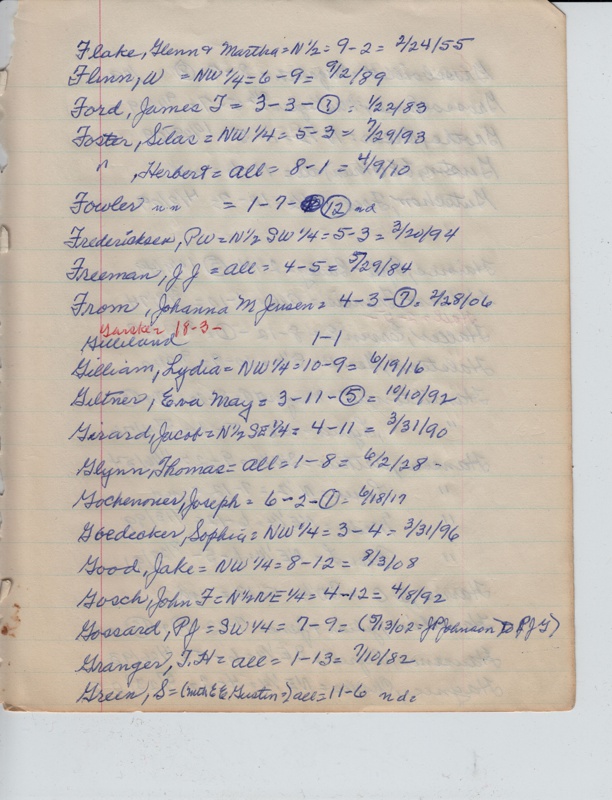 Flake, Glenn & Martha = N½ = 9-2 = 2/24/55
Flinn, W = NW¼ = 6-9 = 9/2/89
Ford, James T = 3-3-⑦ = 1/22/83
Foster, Silas = NW¼ = 5-3 = 7/29/93
" , Herbert = all = 8-1 = 4/9/10
Fowler nn = 1-7- ⑫ nd
Fredericksen, PW = N½ SW¼ = 5-3 = 3/20/94
Freeman, J J = all = 4-5 = 5/29/84
From, Johanna M Jensen = 4-3-⑦ = 2/28/06
18-3-
Gilleland 1-1
Gilliam, Lydia = NW¼ = 10-9 = 6/19/16
Giltner, Eva May = 3-11-⑤ = 10/10/92
Girard, Jacob = N½SE¼ = 4-11 = 3/31/90
Glynn, Thomas = all = 1-8 = 6/2/28 -
Gochenouer, Joseph = 6-2-① = 6/18/17
Goedecker, Sophia = NW¼ = 3-4 = 3/31/96
Good, Jake = NW¼ = 8-12 = 8/3/08
Gosch, John F = N½NE¼ = 4-12 = 4/8/92
Gossard, PJ = SW¼ = 7-9 = (5/13/02 = JP Johnson to PJG)
Granger, T.H = all = 1-13 = 7/10/82
Green, S = (with E E Gustin =) all = 11-6 nd